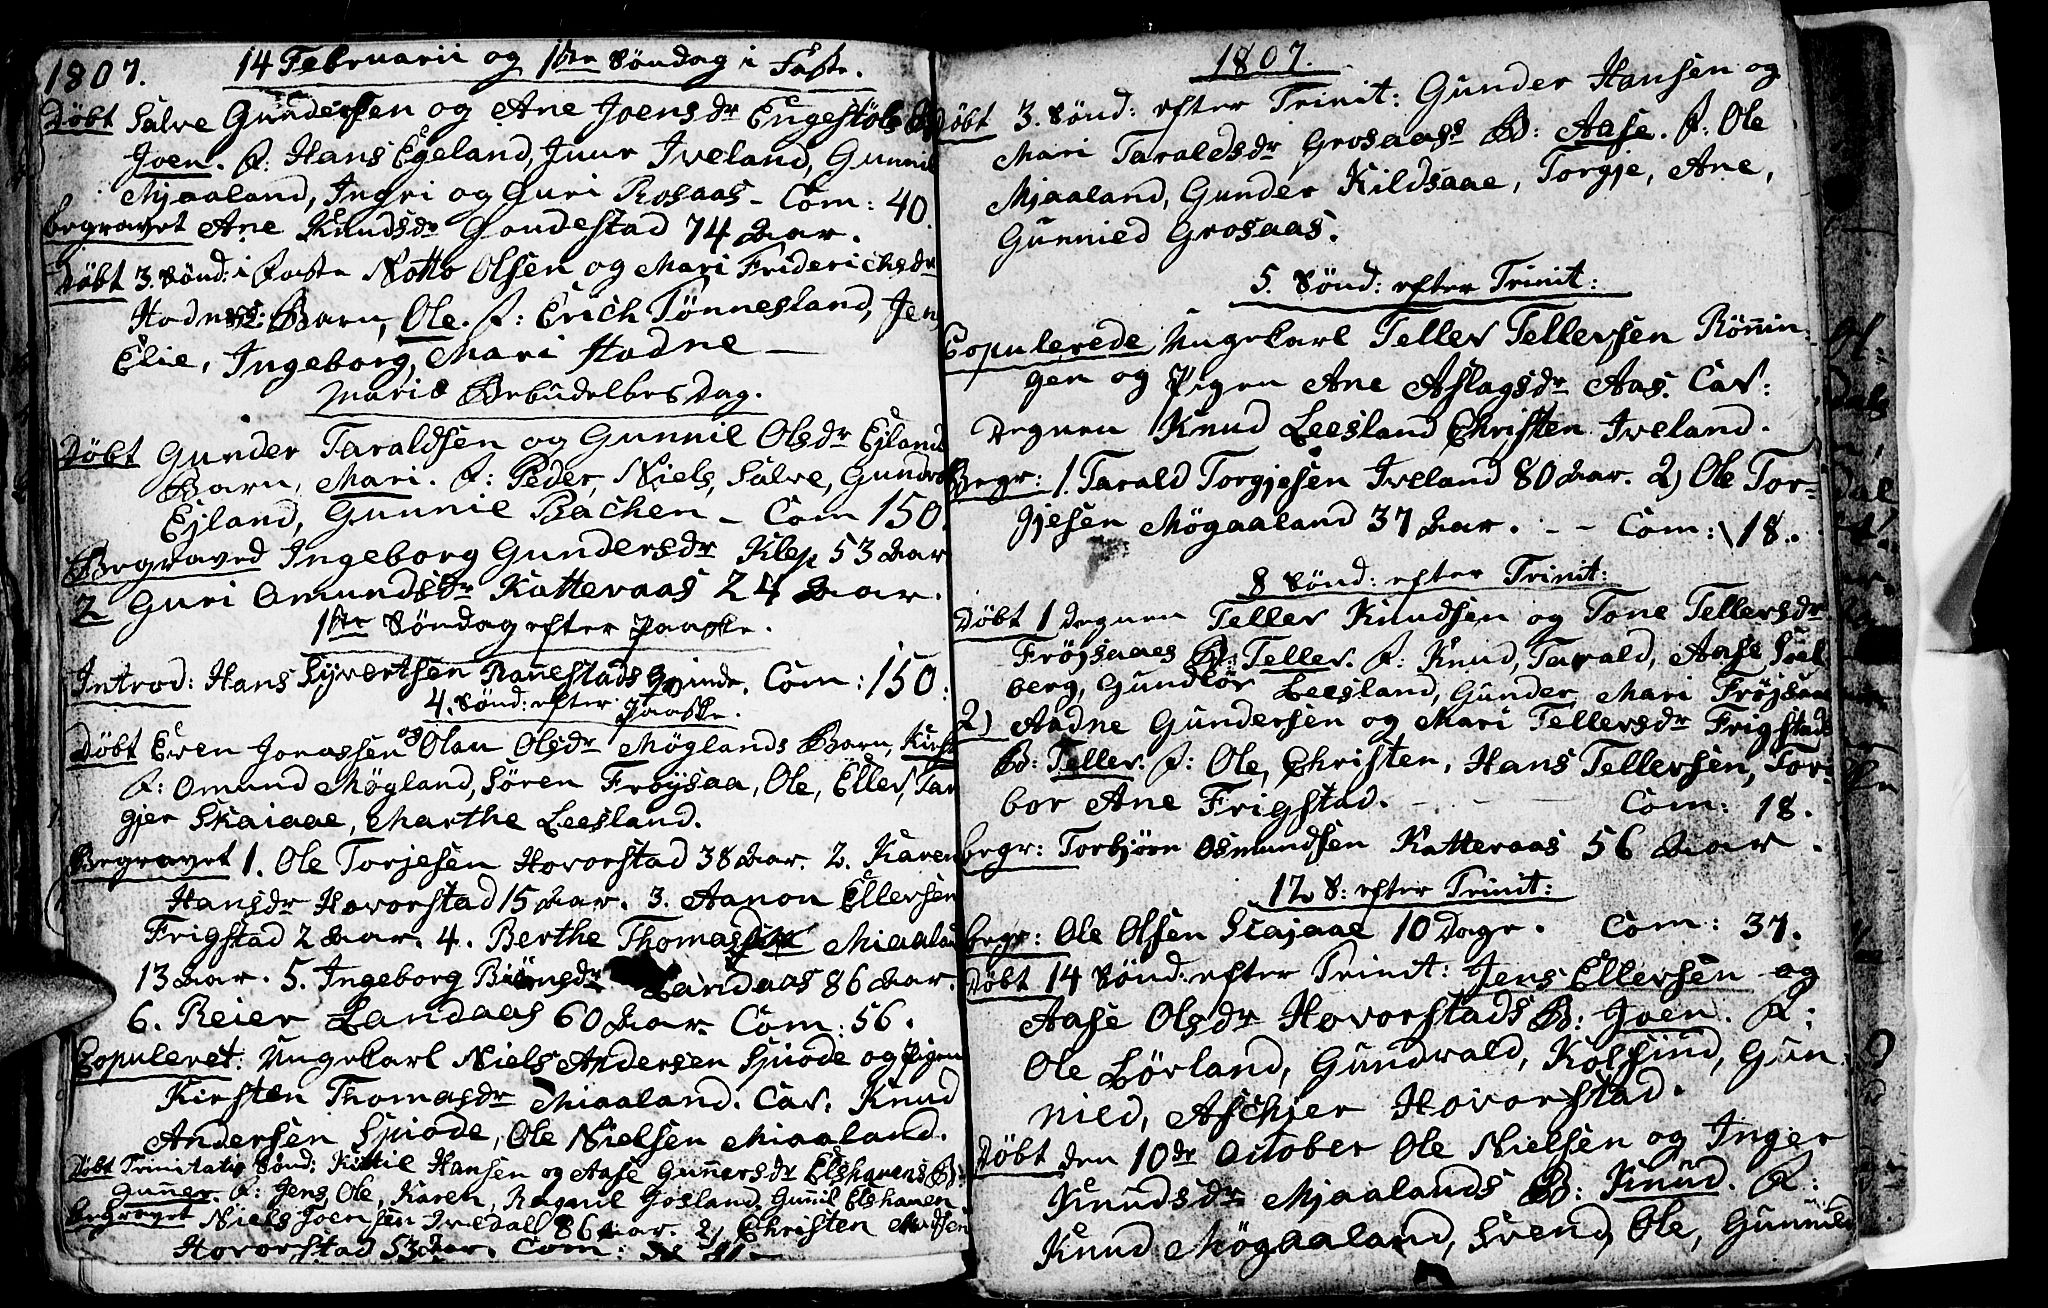 1807. 14 Februarii og 1ste Söndag i Faste.
Döbt Salve Gundersen og Ane Joensdr Engestöls B
Joen. F: Hans Egeland, Juur Iveland, Gunnil
Mjaaland, Ingri og Guri Rosaas - Com: 40.
begravet Ane Knudsdr Hondestad 74 Aar.
Döbt 3. Sönd: i Faste Notto Olsen og Mari Friderichsdr
Hodnes: Barn, Ole. F: Erich Tönnesland, Jens
Elie, Ingeborg, Mari Hodne -
Mariæ Bebudelses Dag.
Döbt Gunder Taraldsen og Gunnil Olsdr Ejland
Barn, Mari. F: Peder, Niels, Salve, Gundro
Ejland, Gunnil Bachen - Com 150.
Begraved Ingeborg Gundersdr Klep 53 Aar
2 Guri Omundsdr Katteraas 24 Aar.
1ste Söndag efter Paaske.
Introd: Hans Syvertsen Ranestads Qvinde. Com: 150.
4. Sönd: efter Paaske.
Döbt Even Jonassen og Olau Olsdr Möglands Barn, Kirst
F: Omund Mögland, Sören Fröysaa, Ole, Eller, Tar
gjer Skaiaae, Marthe Leesland.
Begravet 1. Ole Torjesen Hovorstad 38 Aar. 2. Karen
Hansdr Hovorstad 15 Aar. 3. Aanon Ellersen
Frigstad 2 Aar. 4. Berthe Thomasdr Miaaland
13 Aar. 5. Ingeborg Biörnsdr Landaas 86 Aar.
6. Reier Landaas 60 Aar. Com: 56.
Copuleret: Ungekarl Niels Andersen Spiode og Pigen
Kirsten Thomasdr Miaaland. Cav. Knud
Andersen Spiode, Ole Nielsen Miaaland.
Döbt Trinitatis Sönd: Kittil Hansen og Aase Gunnersdr Elshauens B:
Gunner. F: Jens, Ole, Karen, Ragnil Josland, Gunnil Elshauen.
Begravet Niels Joensen Ivedall 86 Aar. 2) Christen Madsen
Hovorstad 53 Aar. Com:
1807.
Döbt 3. Sönd: efter Trinit: Gunder Hansen og
Mari Taraldsdr Grosaas B: Aase. F: Ole
Mjaaland, Gunder Kildsaae, Torgje, Ane,
Gunnied Grosaas.
5. Sönd: efter Trinit:
Copulerede Ungekarl Teller Tellersen Rönnin-
gen og Pigen Ane Aslagsdr Aas. Cav:
Degnen Knud Leesland Christen Iveland.
Begr: 1. Tarald Torgjesen Iveland 80 Aar. 2) Ole Tor-
gjesen Mögaaland 37 Aar. - - Com: 18.
8 Sönd: efter Trinit:
Döbt 1 Degnen Teller Knudsen og Tone Tellersdr
Fröjsaaes B: Teller. F: Knud, Tarald, Aase Soel
berg, Gundlör Leesland, Gunder, Mari Fröjsaae
2) Aadne Gundersen og Mari Tellersdr Frigstads
B: Teller. F: Ole, Christen, Hans Tellersen, Tor-
bor Ane Frigstad. - - - Com: 18.
begr: Torbjörn Osmundsen Katteraas 56 Aar.
12 S: efter Trinit:
begr: Ole Olsen Scajaae 10 Dage. Com: 37.
Döbt 14 Sönd: efter Trinit: Jens Ellersen og
Aase Olsdr Hovorstads B: Joen. F:
Ole Lörland, Gundvald, Kolsind, Gun-
nied, Aschjer Hovorstad.
Döbt den 10de October Ole Nielsen og Inger
Knudsdr Mjaalands B: Knud. F:
Knud Mögaaland, Svend, Ole, Gunnild